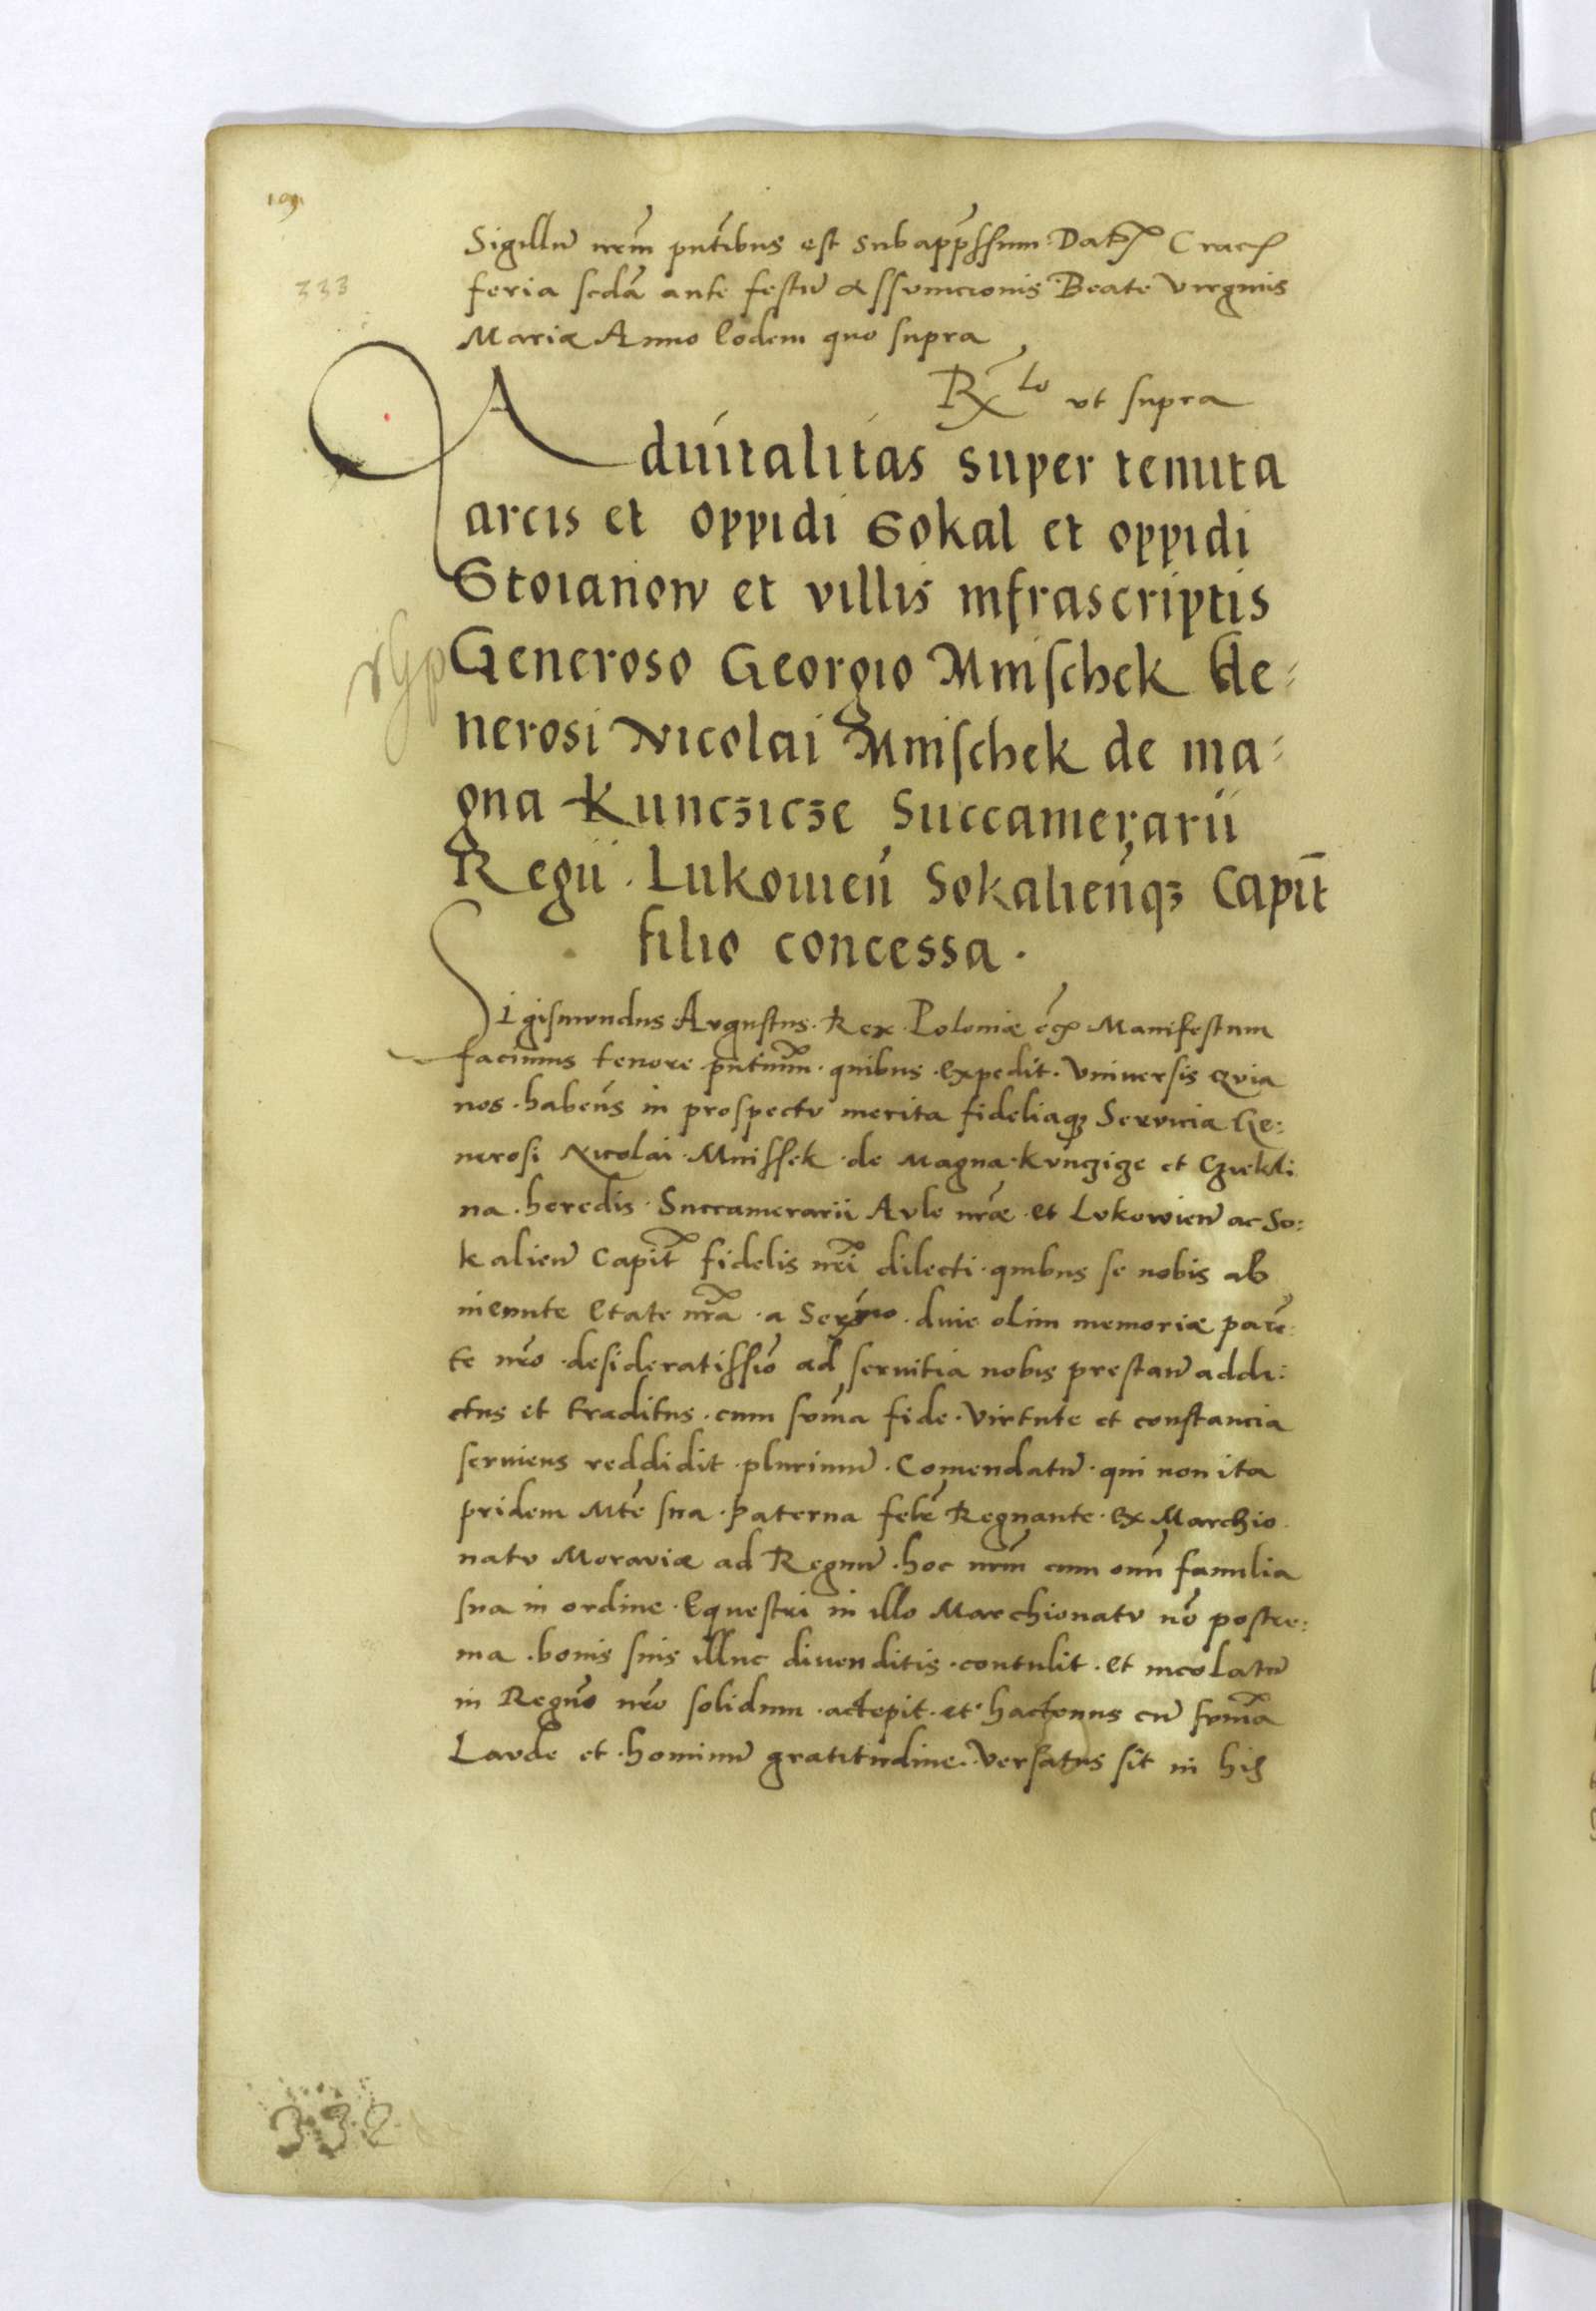 191
333
Sigillū nrm̄ pn̄tibus est subapp̄ssum Dat Crac
feria scdā ante festū Assumcionis Beate Virginis
Mariæ Anno Eodem quo supra
Rx Lo vt supra
Aduitalitas super tenuta
arcis et oppidi Sokal et oppidi
Stoianow et villis infrascriptis
Generoso Georgio Mnischek Ge⸗
nerosi Nicolai Mnischek de ma⸗
gna Kunczicze Succamerarii
Regii. Lukouien̄ Sokalien̄q₃ Capit̄
filio concessa.
Sigismundus Augustus. Rex. Poloniæ etc̄ Manifestum
facimus tenore pn̄tium̄. quibus. expedit. Vniuersis qvia
nos. haben̄s in prospectv merita fideliaq₃ Servicia Ge:
nerosi Nicolai. Mnissek. de Magna. Kunczicze et Czekli
na. heredis. Succamerarii Avle nrāe. et Lvkowien̄ ac So:
kalien̄ Capit̄ fidelis nrī dilecti. quibus se nobis ab
ineunte Etate nrā. a Serᵐᵒ. diuie olim memoriæ parē:
te nrō. desideratissīo ad seruitia nobis prestan̄ addi:
ctus et traditus. cum sum̄a fide. Virtute et constancia
seruiens reddidit. plurimū. Comendatū. qui non ita
pridem Mtē sua. paterna felē Regnante. ex Marchio
natv Moraviæ ad Regnū. hoc nrm̄ cum omī familia
sua in ordine. Equestri in illo Marchionatv nō postre:
ma. bonis suis illuc diuenditis. contulit. et incolatū
in Regnō nrō solidum. accepit. et. hactenus cū sum̄a
Lavde et. hominū gratitudine. Versatus sit in his
332